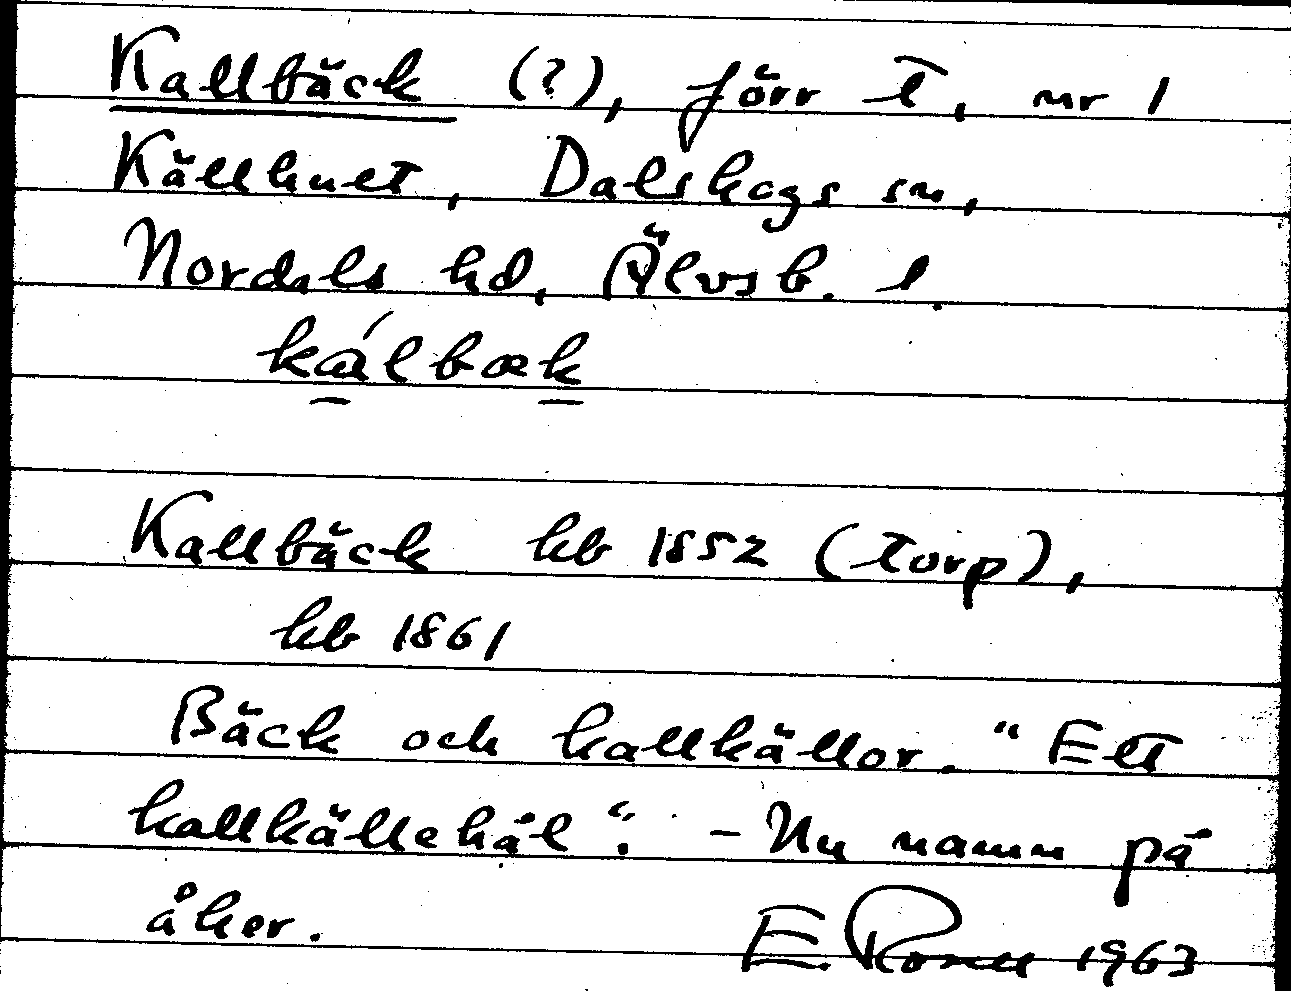 Kallbäck (?), förr t, nr 1
Källhult, Dalskogs sn,
Nordals hd, Älvsb. l.
kálbæk
Kallbäck hb 1852 (torp),
hb 1861
Bäck och kallkällor. "Ett
kallkällehål". - Nu namn på
åker. E. 1963